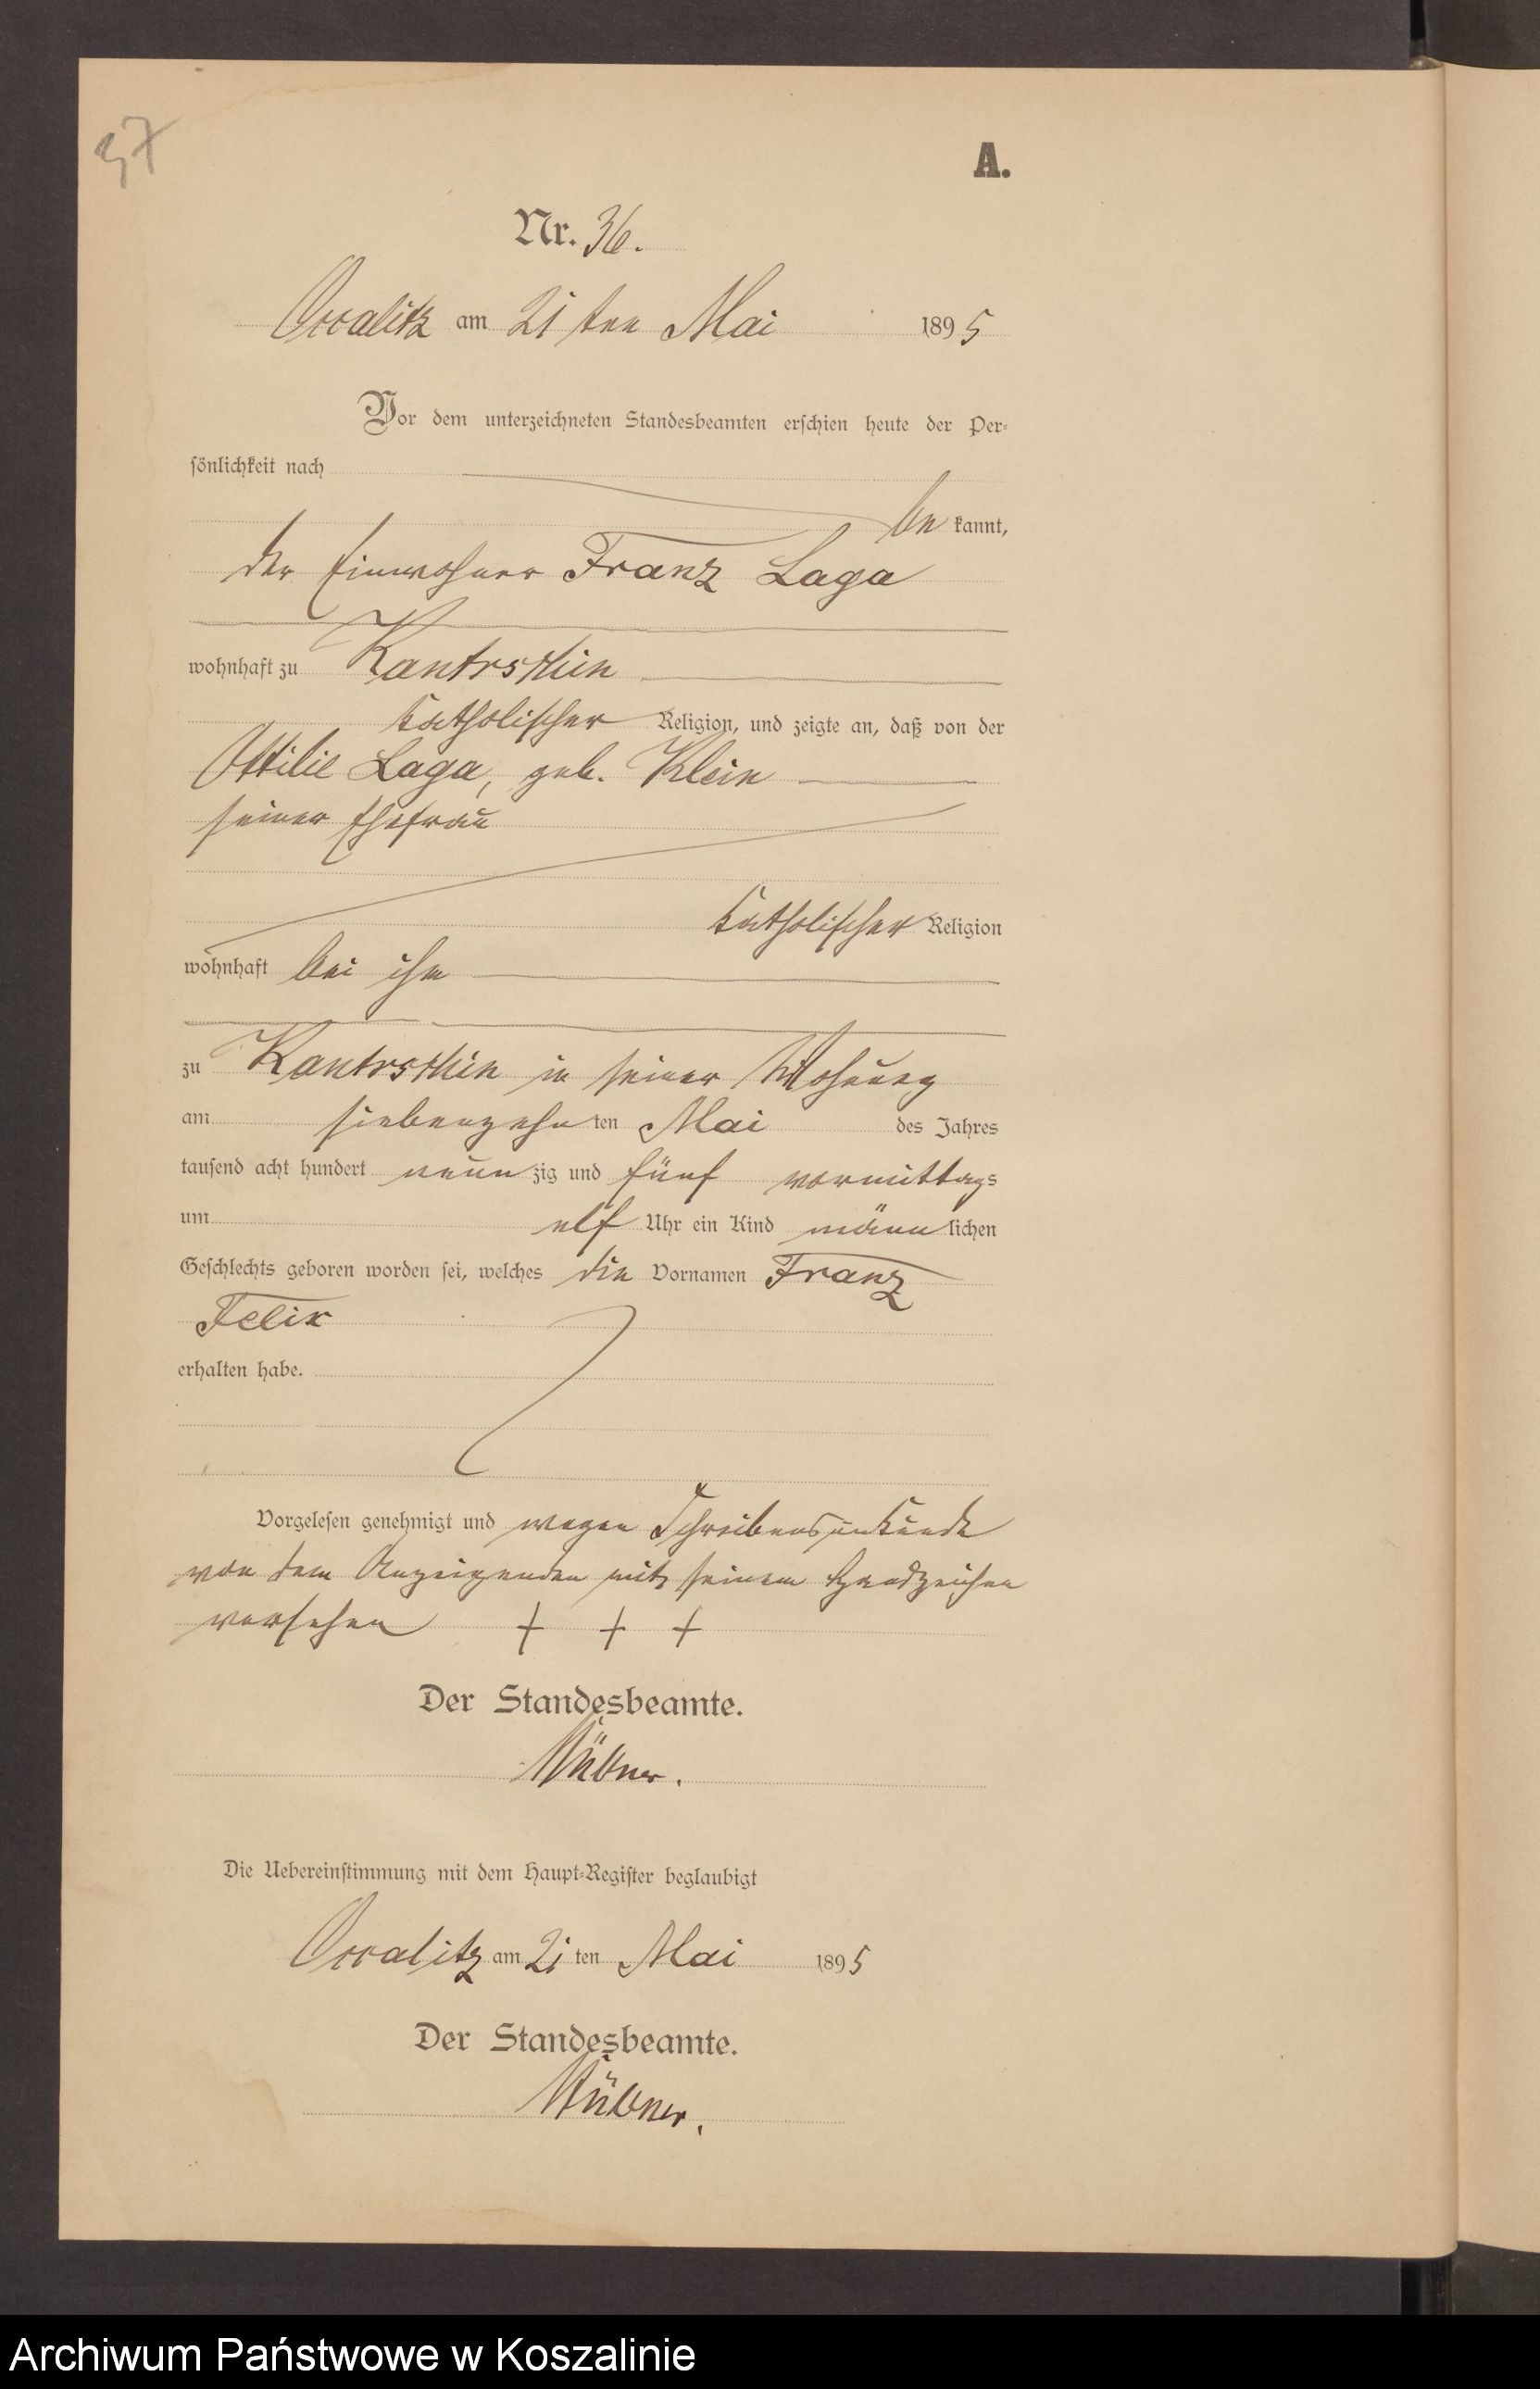 37
A.
Nr. 36.
Occalitz am 21 ten Mai 1895
Vor dem unterzeichneten Standesbeamten erschien heute der Per-
sönlichkeit nach
be kannt,
der Einwohner Franz Laga
wohnhaft zu Kantrschin
katholischer Religion, und zeigte an, daß von der
Ottilie Laga, geb. Klein
seiner Ehefrau
katholischer Religion
wohnhaft bei ihm
zu Kantrschin in seiner Wohnung
am siebenzehn ten Mai des Jahres
tausend acht hundert neun zig und fünf vormittags
um elf Uhr ein Kind männ lichen
Geschlechts geboren worden sei, welches die Vornamen Franz
Felix
erhalten habe.
Vorgelesen genehmigt und wegen Schreibensunkunde
von dem Anzeigenden mit seinem Handzeichen
versehen + + +
Der Standesbeamte.
Die Uebereinstimmung mit dem Haupt-Register beglaubigt
Occalitz am 21 ten Mai 1895
Der Standesbeamte.
Archiwum Państwowe w Koszalinie